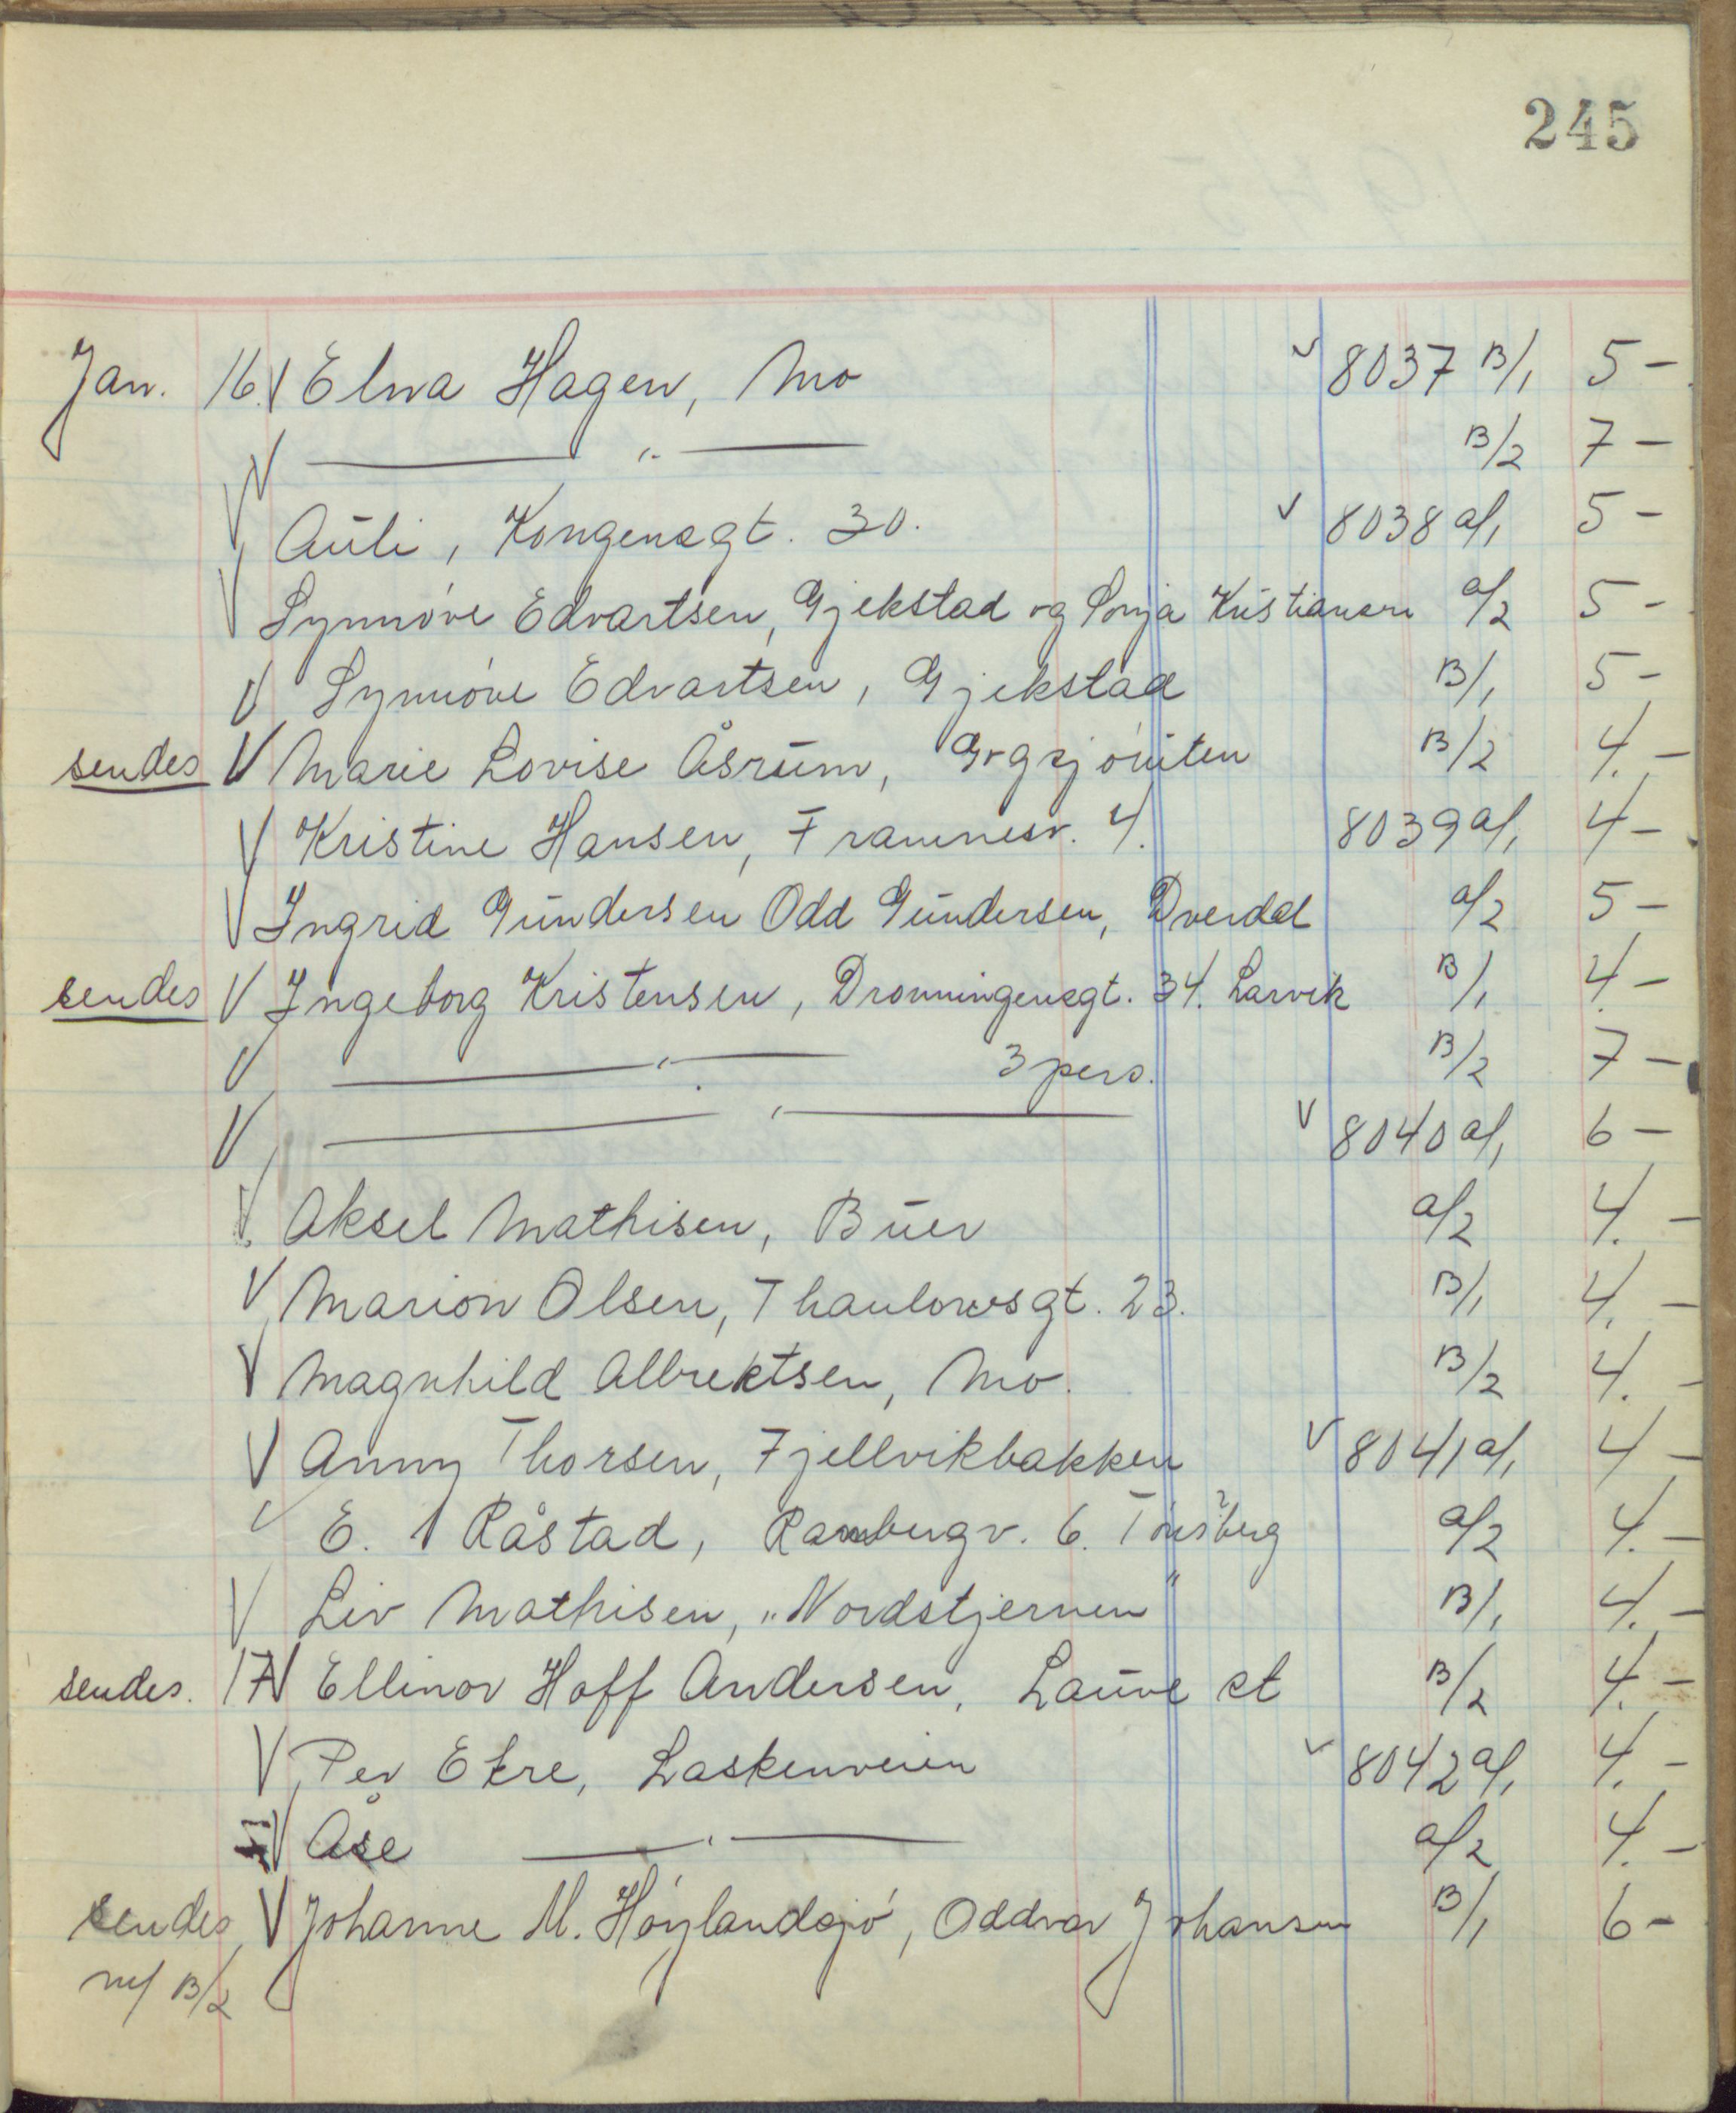 245
Jan. 16. V Elna Hagen, Mo V 8037 B/1 5 -
V —— " —— B/2 7 -
V Auli, Kongensgt. 30. V 8038 a/1 5 -
V Synnøve Edvartsen, Gjekstad og Sonja Kristiansen a/2 5 -
V Synnøve Edvartsen, Gjekstad B/1 5 -
sendes V Marie Lovise Åsrum, B/2 4. -
V Kristine Hansen, Framnesv. 4. 8039 a/1 4 -
V Ingrid Gundersen Odd Gundersen, Dverdal a/2 5 -
sendes V Ingeborg Kristensen, Dronningensgt. 34. Larvik B/1 4. -
V —— " —— 3 pers. B/2 7 -
V —— " —— V 8040 a/1 6 -
V Aksel Mathisen, Buer a/2 4. -
V Marion Olsen, Thaulowsgt. 23. B/1 4. -
V Magnhild Albrektsen, Mo. B/2 4. -
V Anny Thorsen, Fjellvikbakken V 8041 a/1 4 -
V E. Råstad, 6. Tønsberg a/2 4. -
V Liv Mathisen, „Nordstjernen" B/1 4. -
sendes. 17 V Ellinor Hoff Andersen, Lauve st B/2 4. -
V Per Ekre, Laskenveien V 8042 a/1 4. -
V Åse —— " —— a/2 4. -
sendes, V Johanne M. Høylandsjø, Oddvar Johansen B/1 6 -
m/ B/2